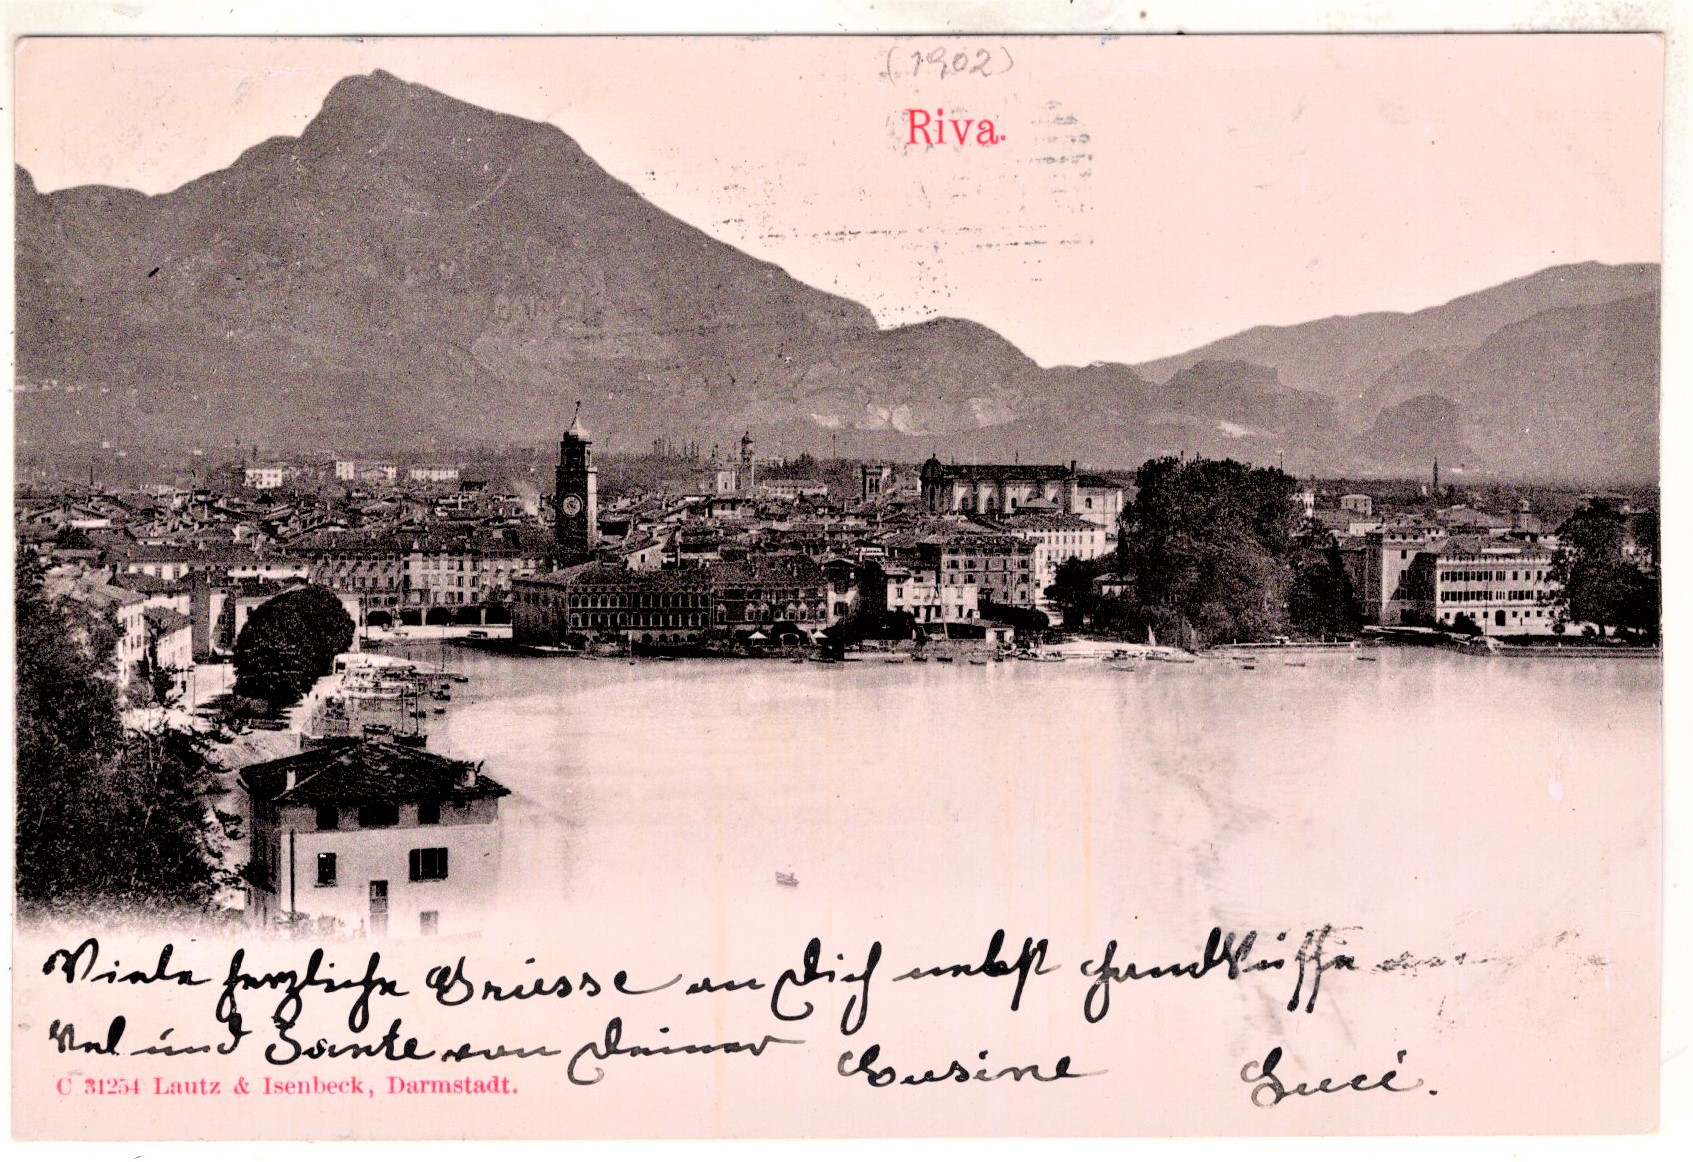 (1902)
Riva.
Viele herzliche Griesse an Dich nebst Handküsse
und Tante von Deiner
Cusine Luci.
C 31254 Lautz & Isenbeck, Darmstadt.